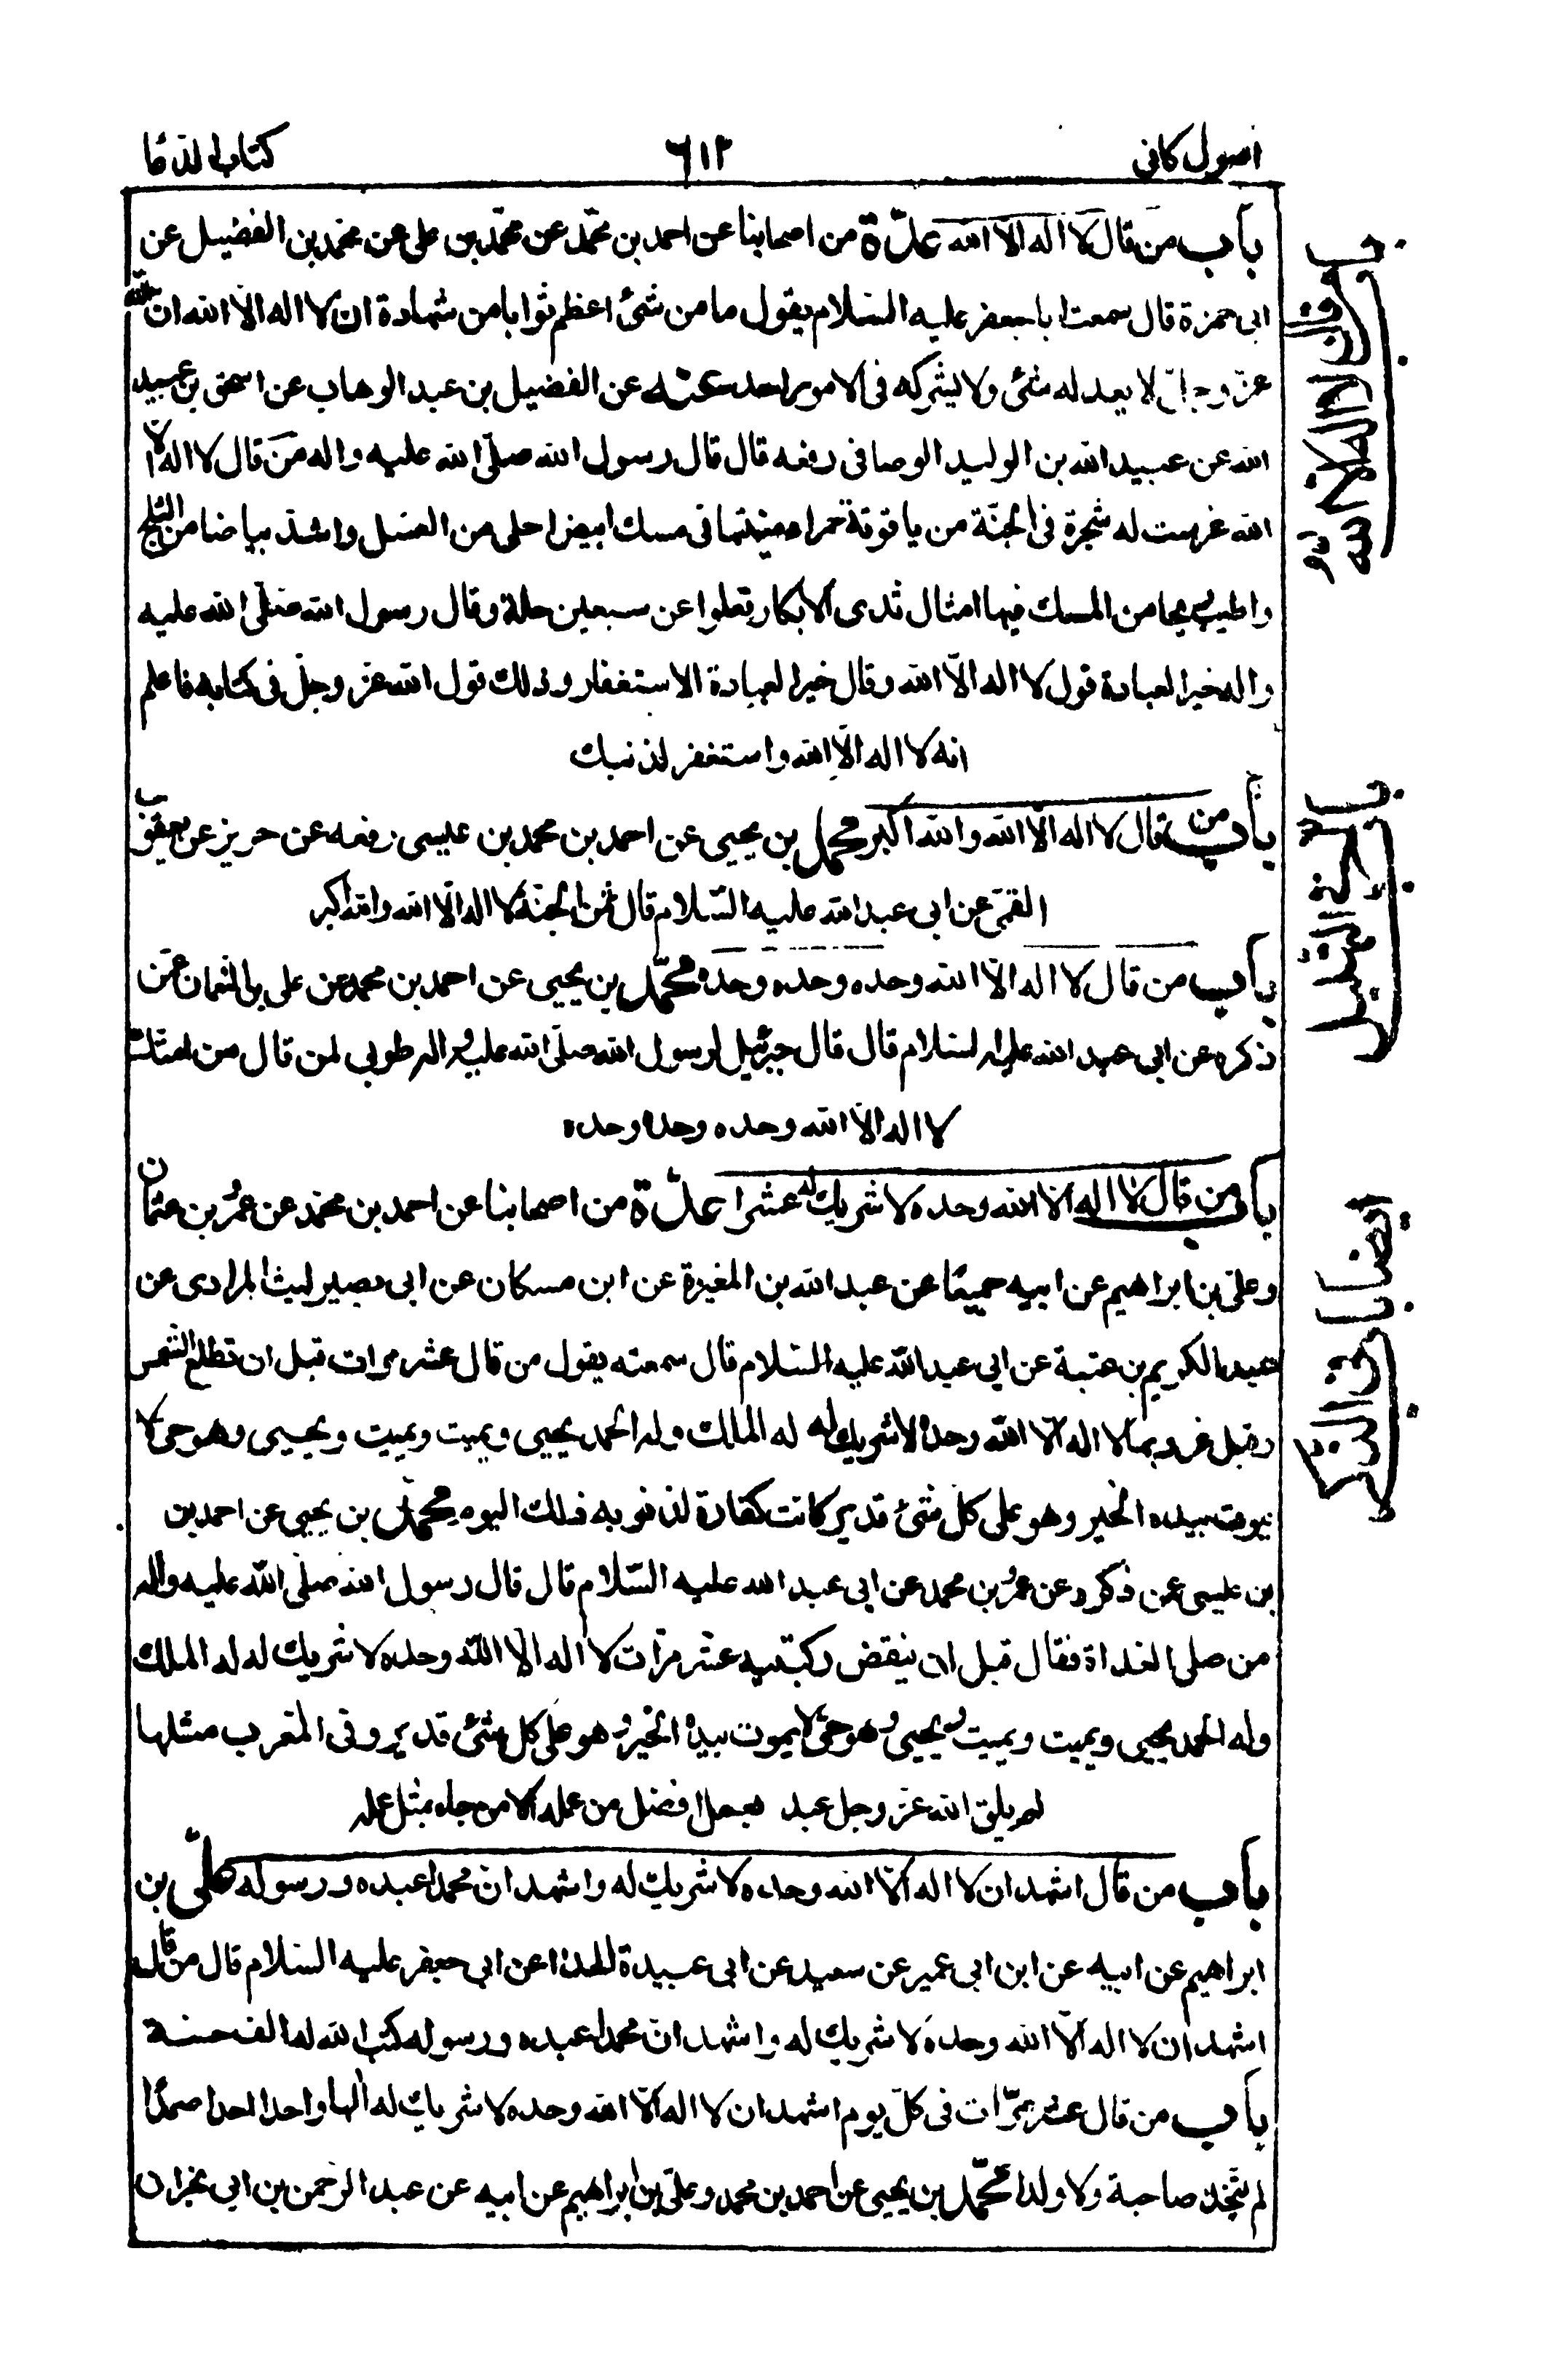 اصول کافی
٦١٢
کتاب الدعا
باب من قال لا اله الا الله عدّة من اصحابنا عن احمد بن محمّد عن محمّد بن علی عن محمد بن الفضیل عن
ابی حمزة قال سمعت ابا جعفر علیه السلام یقول ما من شئ اعظم ثوابا من شهادة ان لا اله الا الله ان الله
عز و جل لا یعدله شئ ولا یشرکه فی الامور احد عنه عن الفضیل بن عبد الوهاب عن اسحق بن عبید
الله عن عبید الله بن الولید الوصافی رفعه قال قال رسول الله صلّی الله علیه واله من قال لا اله الا
الله غرست له شجرة فی الجنّة من یاقوتة حمراء منبتها فی مسك ابیض احلی من العسل واشد بیاضا من الثلج
واطیب ریحا من المسك فیها امثال ثدی الابکار تعلوا عن سبعین حلة وقال رسول الله صلّی الله علیه
واله خیر العبادة قول لا اله الّا الله وقال خیر العبادة الاستغفار وذلك قول الله عز وجلّ فی کتابه فاعلم
انه لا اله الّا الله واستغفر لذنبك
باب من قال لا اله الّا الله والله اکبر محمد بن یحیی عن احمد بن محمد بن عیسی رفعه عن حریز عن یعقوب
القمّی عن ابی عبد الله علیه السّلام قال ثمن الجنّة لا اله الّا الله والله اکبر
باب من قال لا اله الّا الله وحده وحده وحده محمّد بن یحیی عن احمد بن محمد عن علی بن النعمان عمّن
ذکره عن ابی عبد الله علیه السلام قال قال جبرئیل لرسول الله صلّی الله علیه واله طوبی لمن قال من امتك
لا اله الا الله وحده وحده وحده
باب من قال لا اله الا الله وحده لا شریك له عشرا عدّة من اصحابنا عن احمد بن محمد عن عمرو بن عثمان
وعلی بن ابراهیم عن ابیه جمیعا عن عبد الله بن المغیرة عن ابن مسکان عن ابی بصیر لیث المرادی عن
عبد الکریم بن عتبة عن ابی عبد الله علیه السّلام قال سمعته یقول من قال عشر مرات قبل ان تطلع الشمس
وقبل غروبها لا اله الّا الله وحده لا شریك له له الملك وله الحمد یحیی ویمیت ویمیت ویحیی وهو حی لا
یموت بیده الخیر وهو علی کلّ شئ قدیر کانت کفارة لذنوبه ذلك الیوم محمد بن یحیی عن احمد بن
بن عیسی عن ذکره عن عمر بن محمد عن ابی عبد الله علیه السّلام قال قال رسول الله صلّی الله علیه واله
من صلی الغداة فقال قبل ان ینقض رکبتیه عشر مرّات لا اله الّا الله وحده لا شریك له له الملك
وله الحمد یحیی ویمیت ویمیت ویحیی وهو حیّ لا یموت بیده الخیر وهو علی کل شئ قدیر وفی المغرب مثلها
لم یلق الله عز وجل عبد بعمل افضل من عمله الا من جاء بمثل عمله
باب من قال اشهد ان لا اله الّا الله وحده لا شریك له واشهد ان محمدا عبده ورسوله علیّ بن
ابراهیم عن ابیه عن ابن ابی عمیر عن سعید عن ابی عبیدة الحذا عن ابی جعفر علیه السلام قال من قال
اشهد ان لا اله الّا الله وحده لا شریك له واشهد ان محمدا عبده ورسوله کتب الله له الف حسنة
باب من قال عشر مرّات فی کلّ یوم اشهد ان لا اله الّا الله وحده لا شریك له الها واحدا احدا صمدا
لم یتّخذ صاحبة ولا ولدا محمّد بن یحیی عن احمد بن محمد وعلی بن ابراهیم عن ابیه عن عبد الرحمن بن ابی نجران